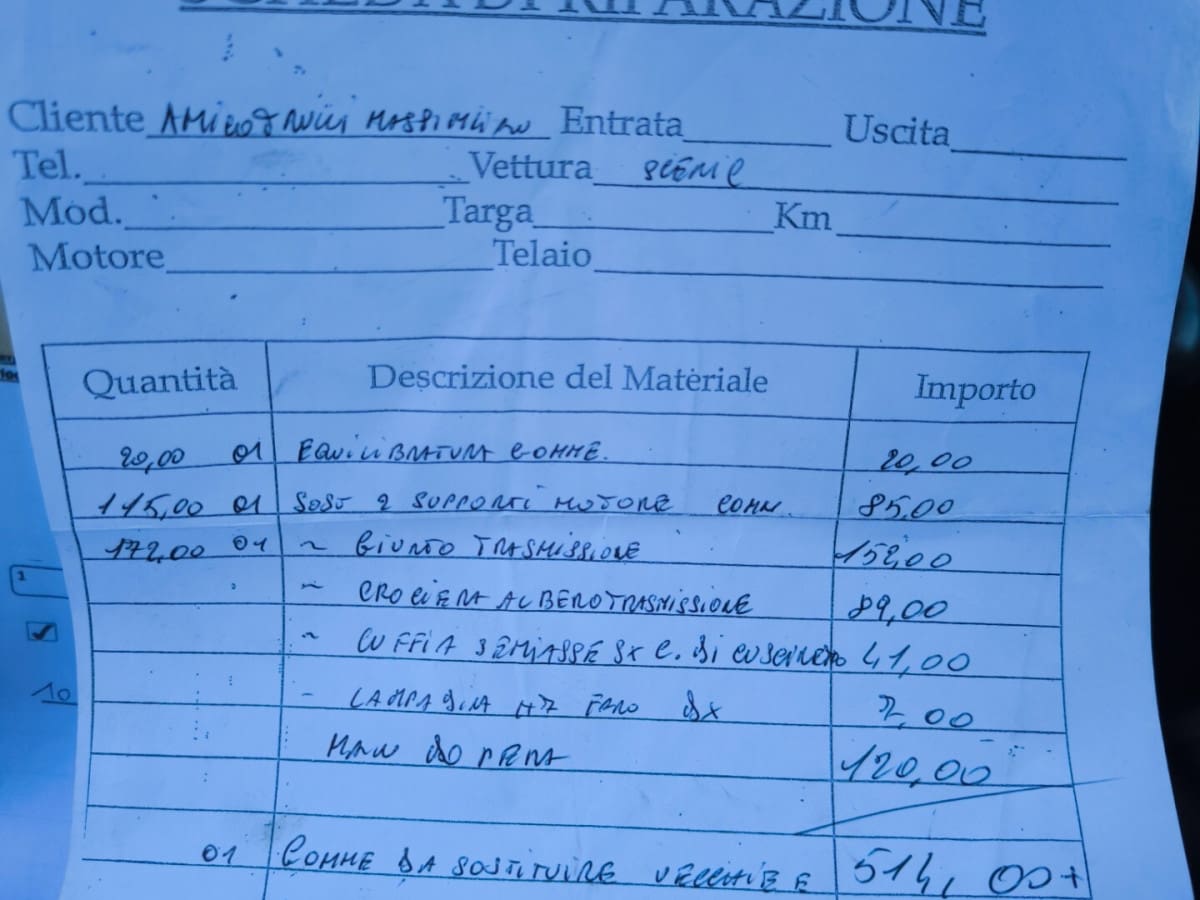 SCHEDA DI RIPARAZIONE
Cliente Entrata Uscita
Tel. Vettura SCENIC
Mod. Targa Km
Motore Telaio
Quantità Descrizione del Materiale Importo
20,00 01 EQUILIBRATURA GOMME. 20,00
115,00 01 SOST 2 SUPPORTI MOTORE 85,00
172,00 01 ~ GIUNTO TRASMISSIONE 152,00
~ CROCIERA ALBERO TRASMISSIONE 89,00
~ CUFFIA SEMIASSE SX 41,00
- LAMPADINA H7 FARO DX 7,00
MANO DOPERA 120,00
01 GOMME DA SOSTITUIRE VECCHIE E 514,00+
1
10